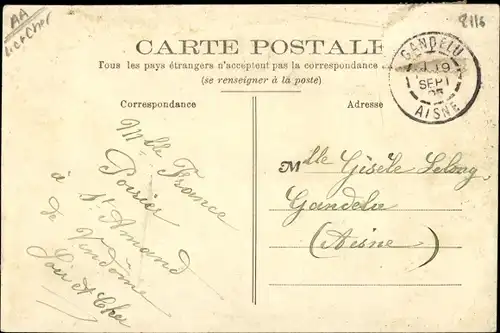 AA
Loir et Cher
2116
CARTE POSTALE
Tous les pays étrangers n'acceptent pas la correspondance
(se renseigner à la poste)
GANDELU
19
SEPT
AISNE
Correspondance
Adresse
Mlle France
Poirier
à St Amand
de Vendôme
Loir et Cher
Mlle Gisèle Lelong
Gandelu
(Aisne)